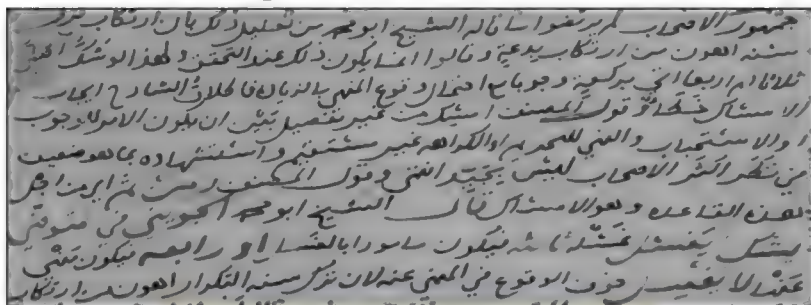 جمهور الاصحاب لم يرتضوا ما قاله الشيخ ابو محمد من تعليل ذلك بان ارتكاب ترك
سنة اهون من ارتكاب بدعة وقالوا انما يكون ذلك عند التحقق ولهذا لو شك اصلى
ثلاثا ام اربعا اتى بركعة وجوبا مع احتمال وقوع المنهي بالزيادة فاطلاق الشارح ايجاب
الامساك خطأ وقول المصنف امسك من غير تفصيل بين ان يكون الامر للوجوب
او الاستحباب والنهي للتحريم او الكراهة غير مستقيم واستشهاده بما هو ضعيف
في نظر اكثر الاصحاب ليس بجيد انتهى وقول المصنف ومن ثم اي من اجل
هذه القاعدة وهو الامساك قال الشيخ ابو محمد الجويني في متوضئ
يشك يغسل غسلة ثالثة فيكون مامورا بالغسل او رابعة فيكون منهي
عنها لا يغسل خوف الوقوع في المنهي عنه لان ترك سنة التكرار اهون من ارتكاب